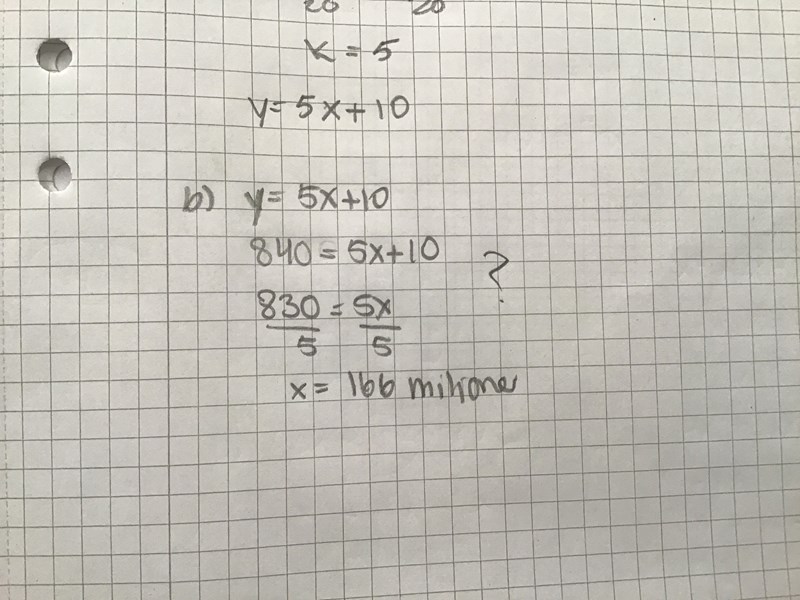 20 20
K = 5
y = 5x + 10
b) y = 5x+10
840 = 5x+10
?
830 = 5x
5 5
x = 166 milioner